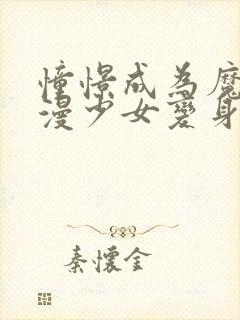 憧憬成為魔
漫少女變身
秦懷金